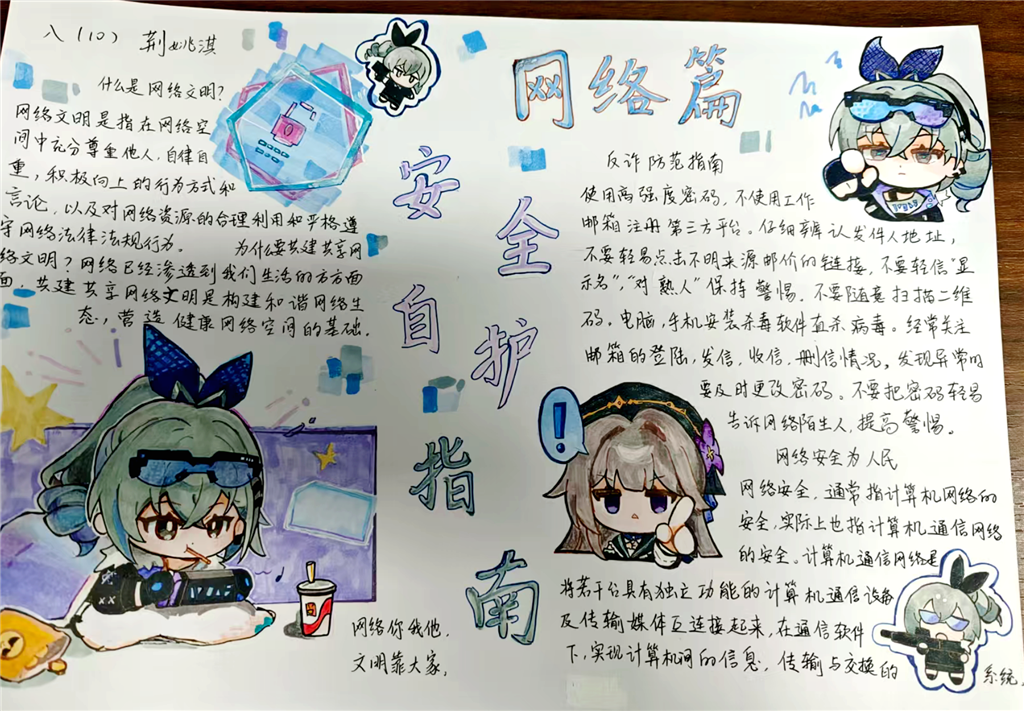 八（10） 荆姚淇
网络篇
安全自护指南
什么是网络文明？
网络文明是指在网络空
间中充分尊重他人，自律自
重，积极向上的行为方式和
言论，以及对网络资源的合理利用和严格遵
守网络法律法规行为。 为什么要共建共享网
络文明？网络已经渗透到我们生活的方方面
面，共建共享网络文明是构建和谐网络生
态，营造健康网络空间的基础。
网络你我他，
文明靠大家，
反诈防范指南
使用高强度密码，不使用工作
邮箱注册第三方平台。仔细辨认发件人地址，
不要轻易点击不明来源邮价的链接，不要轻信“显
示名”，“对熟人”保持警惕。不要随意扫描二维
码。电脑，手机安装杀毒软件直杀病毒。经常关注
邮箱的登陆，发信，收信，删信情况。发现异常时
要及时更改密码。不要把密码轻易
告诉网络陌生人，提高警惕。
网络安全为人民
网络安全，通常指计算机网络的
安全，实际上也指计算机通信网络
的安全。计算机通信网络是
将若干台具有独立功能的计算机通信设备
及传输媒体互连接起来，在通信软件
下，实现计算机间的信息，传输与交换的
系统。